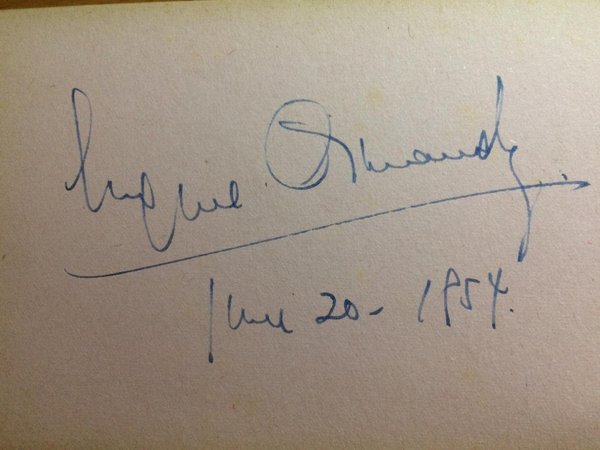 Eugene Ormandy
June 20 - 1954.